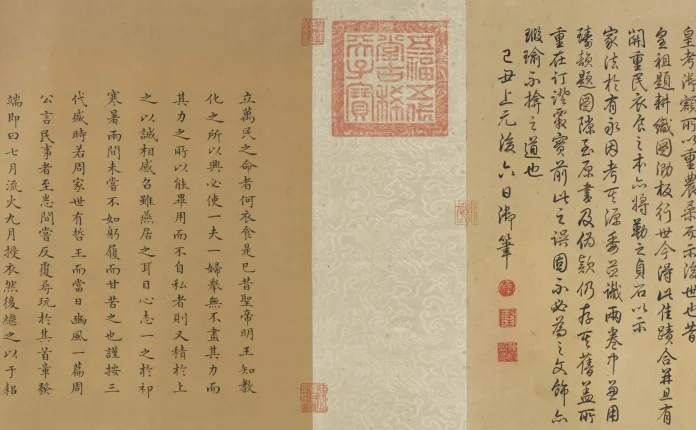 皇考御額所以重農桑而示後世也昔
皇祖題耕織圖板行世今得此佳蹟合並且有
關重民衣食之本亦將勒之貞石以示
家法於有永因考其源委並識兩卷中兼用
璹韻題圖隙至原書及偽款仍存其舊蓋所
重在訂證覈實前此之誤固不必為之文飾亦
瑕瑜不揜之道也
己丑上元後六日御筆
五福五代
堂古稀
天子寶
立萬民之命者何衣食是已昔聖帝明王知教
化之所以興必使一夫一婦舉無不盡其力而
其力之所以能畢用而不自私者則又積於上
之以誠相感召雖燕居之耳目心志一之於祁
寒暑雨間未嘗不如躬履而甘苦之也謹按三
代盛時若周家世有哲王而當日豳風一篇周
公言民事者至悉間嘗反覆尋玩於其首章發
端即曰七月流火九月授衣然後繼之以于耜